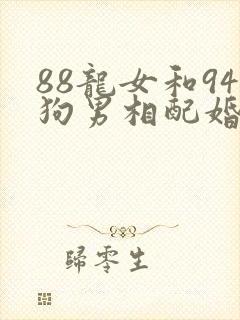 88龍女和94
狗男相配婚
歸零生